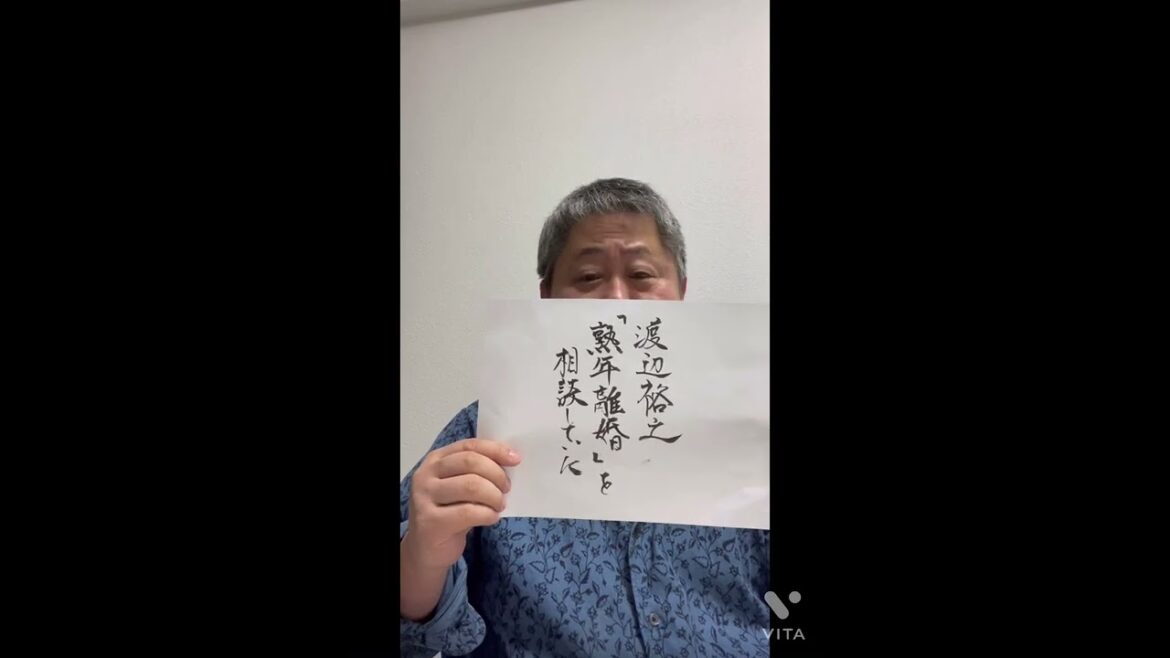 渡辺裕之
「熟年離婚」を
相談していた
VITA